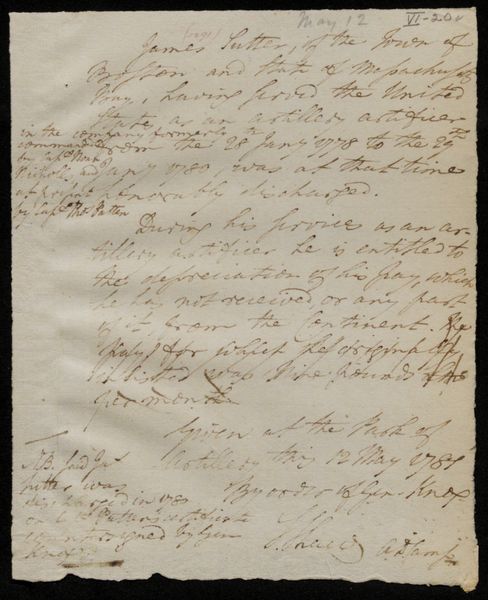 May 12
VI-20v
James Sutter, of the Town of
Boston and State of Massachusetts
Bay, having served the United
States as an artillery artificer
in the company formerly
commanded
from the 28 Jany 1778 to the 29th
by Capt
Nichols, and
Jany 1780, was at that time
at present
honorably discharged.
by Capt Thos Patten
During his service as an ar-
tillery artificer he is entitled to
the depreciation of his pay, which
he has not received, or any part
of it, from the Continent. The
for which he originally
inlisted was Nine pounds
per month
Given at the Park of
Artillery this 12 May 178
NB. said Js
Sutter was
By order of Gen. Knox
discharged in 1780
on C Patten's certificate
signed by Gen
S. Shaw
Knox